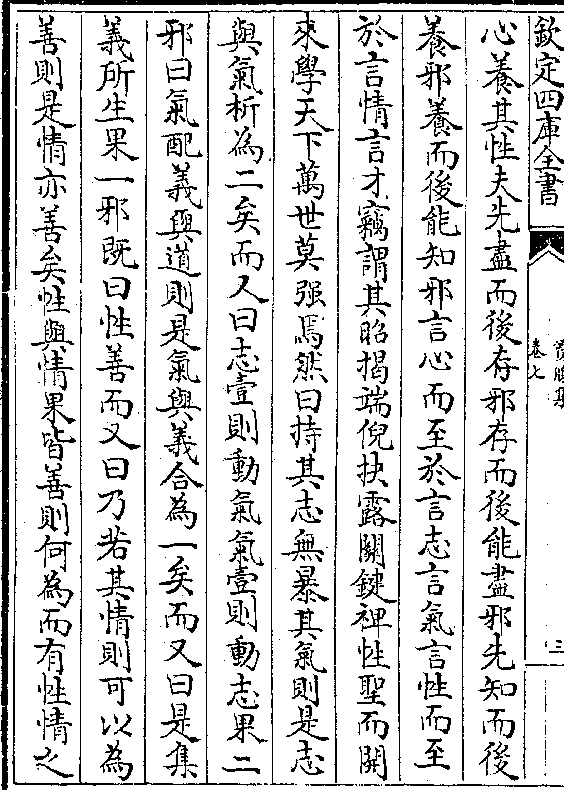 欽定四庫全書
卷七
三
心養其性夫先盡而後存邪存而後能盡邪先知而後
養邪養而後能知邪言心而至於言志言氣言性而至
於言情言才竊謂其昭揭端倪抉露關鍵裨性聖而開
來學天下萬世莫强焉然曰持其志無暴其氣則是志
與氣析為二矣而又曰志壹則動氣氣壹則動志果二
邪曰氣配義與道則是氣與義合為一矣而又曰是集
義所生果一邪既曰性善而又曰乃若其情則可以為
善則是情亦善矣性與情果皆善則何為而有性情之